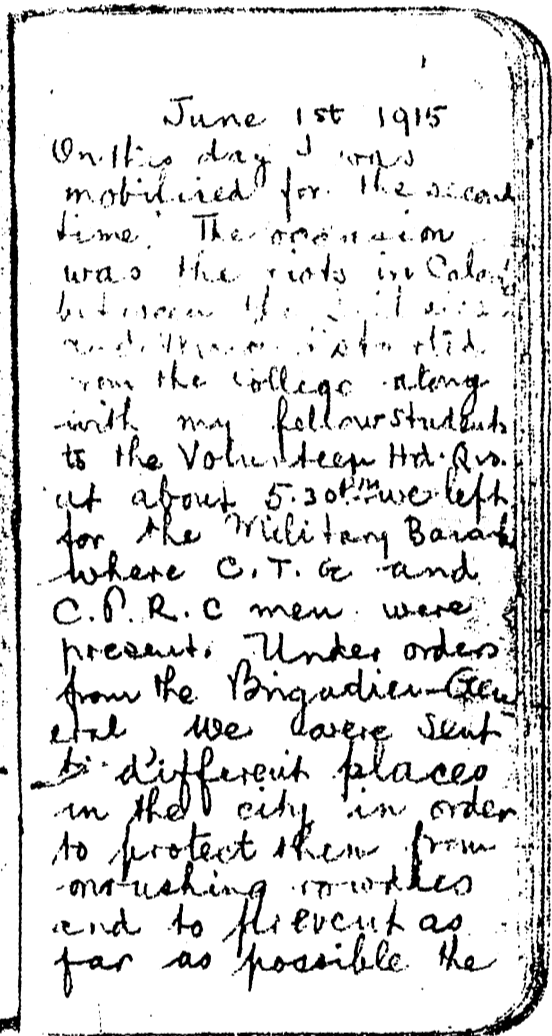 June 1st 1915
On this day I was
mobilized for the second
time. The occasion
was the riots in
between the
and
from the College along
with my fellow students
to the Volunteer Hd. Qrs.
at about 5.30 pm we left
for the Military Barack
where C.T.G and
C.P.R.C men were
present. Under orders
from the Brigadier-Gen
eral we were sent
to different places
in the city in order
to protect them from
onrushing rowdies
and to prevent as
far as possible the